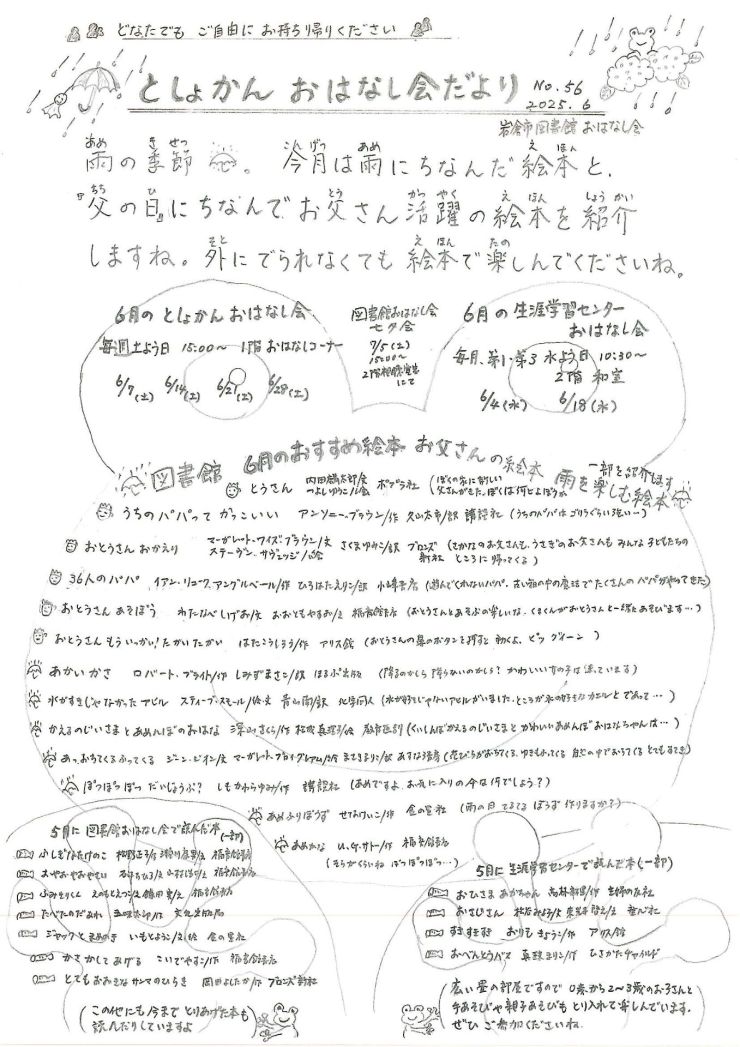 どなたでも ご自由に お持ち帰りください
としょかん おはなし会だより No.56
2025.6
岩倉市図書館 おはなし会
雨の季節。 今月は雨にちなんだ絵本と、
『父の日』にちなんでお父さん活躍の絵本を紹介
しますね。外にでられなくても絵本で楽しんでくださいね。
6月の としょかん おはなし会
毎週土よう日 15:00～ 1階おはなしコーナー
6/7(土) 6/14(土) 6/21(土) 6/28(土)
図書館おはなし会
七夕会
7/5(土)
15:00～
2階視聴覚室
にて
6月の 生涯学習センター
おはなし会
毎月、第1・第3 水よう日 10:30～
2階 和室
6/4(水) 6/18(水)
図書館 6月のおすすめ絵本 お父さんの絵本 雨を楽しむ絵本
一部を紹介します
とうさん 内田麟太郎/文 つよしゆうこ/絵 ポプラ社 (ぼくの家に新しい父さんがきた。ぼくは
うちのパパってかっこいい アンソニー・ブラウン/作 久山太市/訳 講談社 (うちのパパはゴリラぐらい強い…)
おとうさん おかえり マーガレット・ワイズ・ブラウン/文 スティーヴン・サヴェッジ/絵 さくまゆみこ/訳 ブロンズ新社 (さかなのお父さんも、うさぎのお父さんも みんな 子どもたちの ところに帰ってくる)
36人のパパ イアン・リュック・アングルベール/作 ひろはたえりこ/訳 小峰書店
おとうさん あそぼう わたなべしげお/文 おおともやすお/絵 福音館書店 (おとうさんとあそぶの楽しいな、くまくんがおとうさんと一緒にあそびます…)
おとうさん もういっかい! たかいたかい はたこうしろう/作 アリス館 (おとうさんの鼻のボタンを押すと動くよ、ピッ グイーン)
あかいかさ ロバート・ブライト/作 しみずまさこ/訳 ほるぷ出版 (降るのかしら 降らないのかしら? かわいい女の子は迷っています)
水がすきじゃなかったアヒル スティーブ・スモール/絵・文 青山南/訳 化学同人 (水が好きじゃないアヒルがいました。ところが水の好きなカエルとであって…)
かえるのじいさまとあめんぼおはな 深山さくら/作 松成真理子/絵 教育画劇 (くいしんぼかえるのじいさまと かわいいあめんぼおはなちゃんは…)
あっ おちてくる ふってくる ジーン・ジオン/文 マーガレット・ブロイ・グレアム/絵 まさきるりこ/訳 あすなろ書房
ぽつぽつぽつ だいじょうぶ? しもかわらゆみ/作 講談社 (あめですよ、お気に入りのかさは何でしょう?)
あめふりぼうず せなけいこ/作 金の星社 (雨の日 てるてるぼうず作りますか?)
あめかな U.G.サトー/作 福音館書店
(そらがくらいね ぽつぽつぽつ…)
5月に 図書館おはなし会で読んだ本
(一部)
ふしぎなたけのこ 松野正子/文 瀬川康男/絵 福音館書店
おやおやおやさい 石津ちひろ/文 山村浩二/絵 福音館書店
ふみきりくん えのもとえつこ/文 鎌田歩/絵 福音館書店
たべたのだあれ 五味太郎/作 文化出版局
ジャックとまめのき いもとようこ/文・絵 金の星社
かさかしてあげる こいでやすこ/作 福音館書店
とてもおおきなサンマのひらき 岡田よしたか/作 ブロンズ新社
(この他にも今まで とりあげた本も
読んだりしていますよ)
5月に 生涯学習センターで読んだ本(一部)
おひさま あかちゃん 高林麻里/作 主婦の友社
おさじさん 松谷みよ子/文 東光寺啓/え 童心社
すきすきすき おりもきょうこ/作 アリス館
おべんとうバス 真珠まりこ/作 ひさかたチャイルド
(広い畳の部屋ですので 0歳から2～3歳のお子さんと
手あそびや親子あそびも とり入れて楽しんでいます。
ぜひ ご参加くださいね)